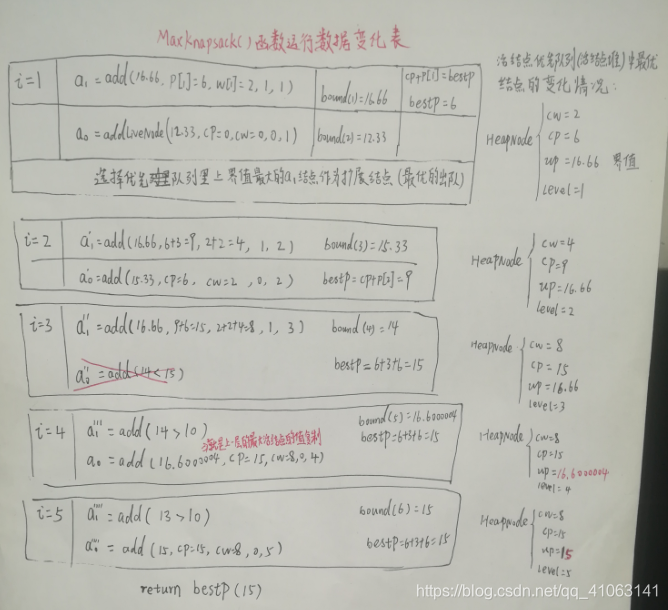 MaxKnapsack()函数运行数据变化表
i=1
a₁=add(16.66, P[i]=6, w[i]=2, 1, 1)
bound(1)=16.66
cp+p[i]=bestp
bestp=6
a₀=addLiveNode(12.33, cp=0, cw=0, 0, 1)
bound(2)=12.33
选择优先队列里上界值最大的a₁结点作为扩展结点(最优的出队)
活结点优先队列(活结点堆)中最优
结点的变化情况:
HeapNode
cw=2
cp=6
up=16.66 界值
level=1
i=2
a₁'=add(16.66, 6+3=9, 2+2=4, 1, 2)
bound(3)=15.33
a₀'=add(15.33, cp=6, cw=2, 0, 2)
bestp=cp+p[2]=9
HeapNode
cw=4
cp=9
up=16.66
level=2
i=3
a₁''=add(16.66, 9+6=15, 2+2+4=8, 1, 3)
bound(4)=14
a₀''=add(14<15)
bestp=6+3+6=15
HeapNode
cw=8
cp=15
up=16.66
level=3
i=4
a₁'''=add(14>10)
bound(5)=16.6000004
a₀=add(16.6000004, cp=15, cw=8, 0, 4)
bestp=6+3+6=15
HeapNode
cw=8
cp=15
up=16.6000004
level=4
i=5
a₁''''=add(13>10)
bound(6)=15
a₀''''=add(15, cp=15, cw=8, 0, 5)
bestp=6+3+6=15
HeapNode
cw=8
cp=15
up=15
level=5
return bestp(15)
https://blog.csdn.net/qq_41063141